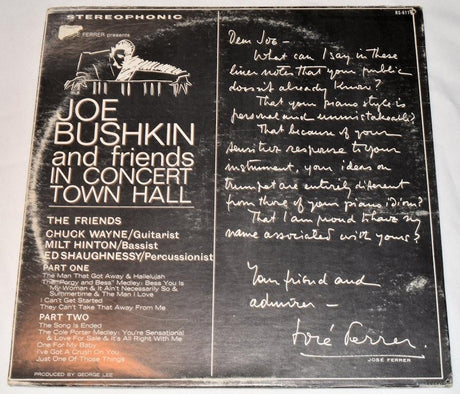 STEREOPHONIC
FERRER presents
JOE
BUSHKIN
and friends
IN CONCERT
TOWN HALL
THE FRIENDS
CHUCK WAYNE/Guitarist
MILT HINTON/Bassist
ED SHAUGHNESSY/Percussionist
PART ONE
The Man That Got Away & Hallelujah
The "Porgy and Bess" Medley: Bess You Is
My Woman & It Ain't Necessarily So &
Summertime & The Man I Love
I Can't Get Started
They Can't Take That Away From Me
PART TWO
The Song Is Ended
The Cole Porter Medley: You're Sensational
& Love For Sale & It's All Right With Me
One For My Baby
I've Got A Crush On You
Just One Of Those Things
PRODUCED BY GEORGE LEE
Dear Joe –
What can I say in these
liner notes that your public
doesn't already know?
That your piano style is
personal and unmistakeable?
That because of your
sensitive response to your
instrument, your ideas on
trumpet are entirely different
from those of your piano idiom?
That I am proud to have my
name associated with yours?
Your friend and
admirer –
José Ferrer.
JOSÉ FERRER